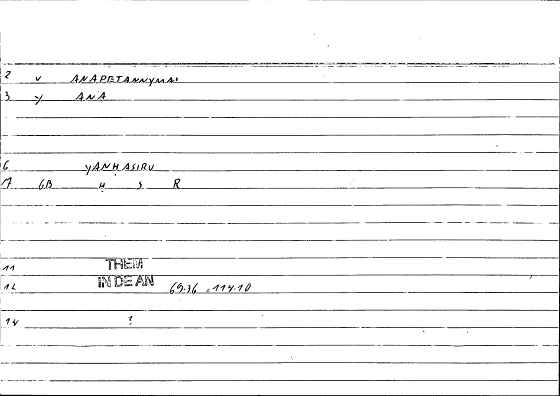 2 v ANAPETANNYMAI
3 y ANA
6 yANHASIRU
17 GB H S R
11 THEM
12 IN DE AN 69.36 = 114.10
14 ?